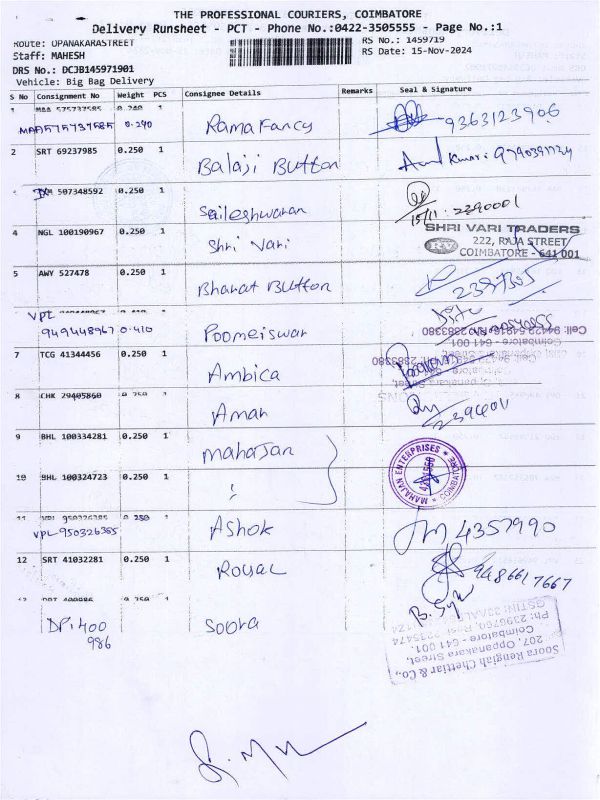 THE PROFESSIONAL COURIERS, COIMBATORE
Delivery Runsheet - PCT - Phone No.:0422-3505555 - Page No.:1
Route: OPANAKARASTREET
RS No.: 1459719
Staff: MAHESH
RS Date: 15-Nov-2024
DRS No.: DCJB145971901
Vehicle: Big Bag Delivery
S No Consignment No Weight PCS Consignee Details Remarks Seal & Signature
1 MAA 575737585 0.240 1
MAA575737585 0.240 Rama Fancy 9363123906
2 SRT 69237985 0.250 1 Balaji Button
507348592 0.250 1 Saileshwaran
15/11 : 2390001
4 NGL 100190967 0.250 1 Shri Vari
SHRI VARI TRADERS
222, RAJA STREET
COIMBATORE - 641 001
5 AWY 527478 0.250 1 Bharat Button
VPL
949448967 0.410 Poomeiswar
Cell: 94422 54916 RN: 2383380
Coimbatore - 641 001
7 TCG 41344456 0.250 1 Ambica
8 CHK 29405860 0.250 1 Aman
9 BHL 100334281 0.250 1 Mahajan
MAHAJAN ENTERPRISES * COIMBATORE *
10 BHL 100324723 0.250 1 "
11 VPL 950326365 0.250 1
VPL 950326365 Ashok 4357990
12 SRT 41032281 0.250 1 Royal 9486617667
13 DPI 400986 0.250 1
DPI 400
986 Soora
Soora Rengiah Chettiar & Co.,
207, Oppanakara Street,
Coimbatore - 641 001.